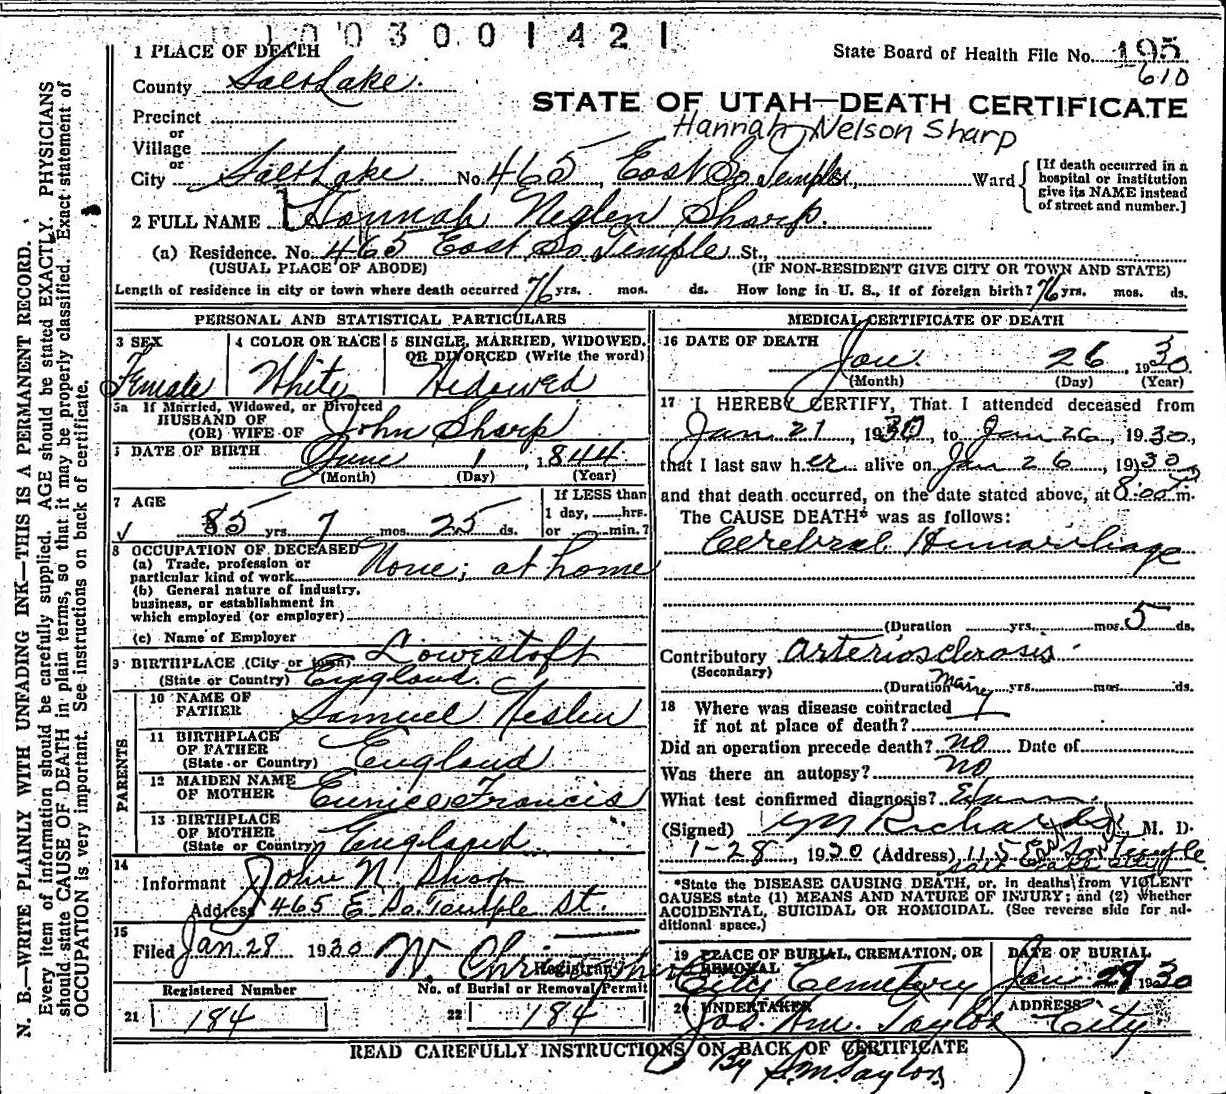 1003001421
1 PLACE OF DEATH
State Board of Health File No. 195
610
County Salt Lake
STATE OF UTAH—DEATH CERTIFICATE
Hannah Nelson Sharp
Precinct
or
Village
or
City Salt Lake No. 465, East So Temple, Ward
[If death occurred in a hospital or institution give its NAME instead of street and number.]
2 FULL NAME Hannah Neslen Sharp.
(a) Residence. No. 465 East So Temple St.,
(USUAL PLACE OF ABODE) (IF NON-RESIDENT GIVE CITY OR TOWN AND STATE)
Length of residence in city or town where death occurred 76 yrs. mos. ds. How long in U. S., if of foreign birth? 76 yrs. mos. ds.
PERSONAL AND STATISTICAL PARTICULARS
3 SEX
Female
4 COLOR OR RACE
White
5 SINGLE, MARRIED, WIDOWED, OR DIVORCED (Write the word)
Widowed
5a If Married, Widowed, or Divorced
HUSBAND OF
(OR) WIFE OF John Sharp
6 DATE OF BIRTH June 1, 1844
(Month) (Day) (Year)
7 AGE
85 yrs. 7 mos. 25 ds.
If LESS than
1 day, hrs.
or min.?
8 OCCUPATION OF DECEASED
(a) Trade, profession or
particular kind of work None; at home
(b) General nature of industry,
business, or establishment in
which employed (or employer)
(c) Name of Employer
9 BIRTHPLACE (City or town) Lowestoft
(State or Country) England.
PARENTS
10 NAME OF
FATHER Samuel Neslen
11 BIRTHPLACE
OF FATHER
(State or Country) England
12 MAIDEN NAME
OF MOTHER Eunice Francis
13 BIRTHPLACE
OF MOTHER
(State or Country) England
14
Informant John N. Sharp
Address 465 E. So. Temple St.
15
Filed Jan. 28 1930
Registrar
Registered Number No. of Burial or Removal Permit
21 184 22 184
MEDICAL CERTIFICATE OF DEATH
16 DATE OF DEATH
Jan. 26 1930
(Month) (Day) (Year)
17 I HEREBY CERTIFY, That I attended deceased from
Jan 21, 1930, to Jan 26, 1930,
that I last saw her alive on Jan 26, 1930
and that death occurred, on the date stated above, at 8:00 m.
The CAUSE DEATH* was as follows:
Cerebral Hemorrhage
(Duration yrs. mos. 5 ds.
Contributory Arteriosclerosis
(Secondary)
(Duration Many yrs. mos. ds.
18 Where was disease contracted
if not at place of death?
Did an operation precede death? no Date of
Was there an autopsy? no
What test confirmed diagnosis?
(Signed) Richards, M. D.
1-28, 1930 (Address) 115 East So Temple
Salt Lake City
*State the DISEASE CAUSING DEATH, or, in deaths from VIOLENT
CAUSES state (1) MEANS AND NATURE OF INJURY; and (2) whether
ACCIDENTAL, SUICIDAL OR HOMICIDAL. (See reverse side for ad-
ditional space.)
19 PLACE OF BURIAL, CREMATION, OR
REMOVAL
City Cemetery
DATE OF BURIAL
Jan 29 1930
20 UNDERTAKER
Jos. Wm. Taylor
ADDRESS
City
READ CAREFULLY INSTRUCTIONS ON BACK OF CERTIFICATE
By S.M. Taylor
N. B.—WRITE PLAINLY WITH UNFADING INK—THIS IS A PERMANENT RECORD.
Every item of information should be carefully supplied. AGE should be stated EXACTLY. PHYSICIANS
should state CAUSE OF DEATH in plain terms, so that it may be properly classified. Exact statement of
OCCUPATION is very important. See instructions on back of certificate.